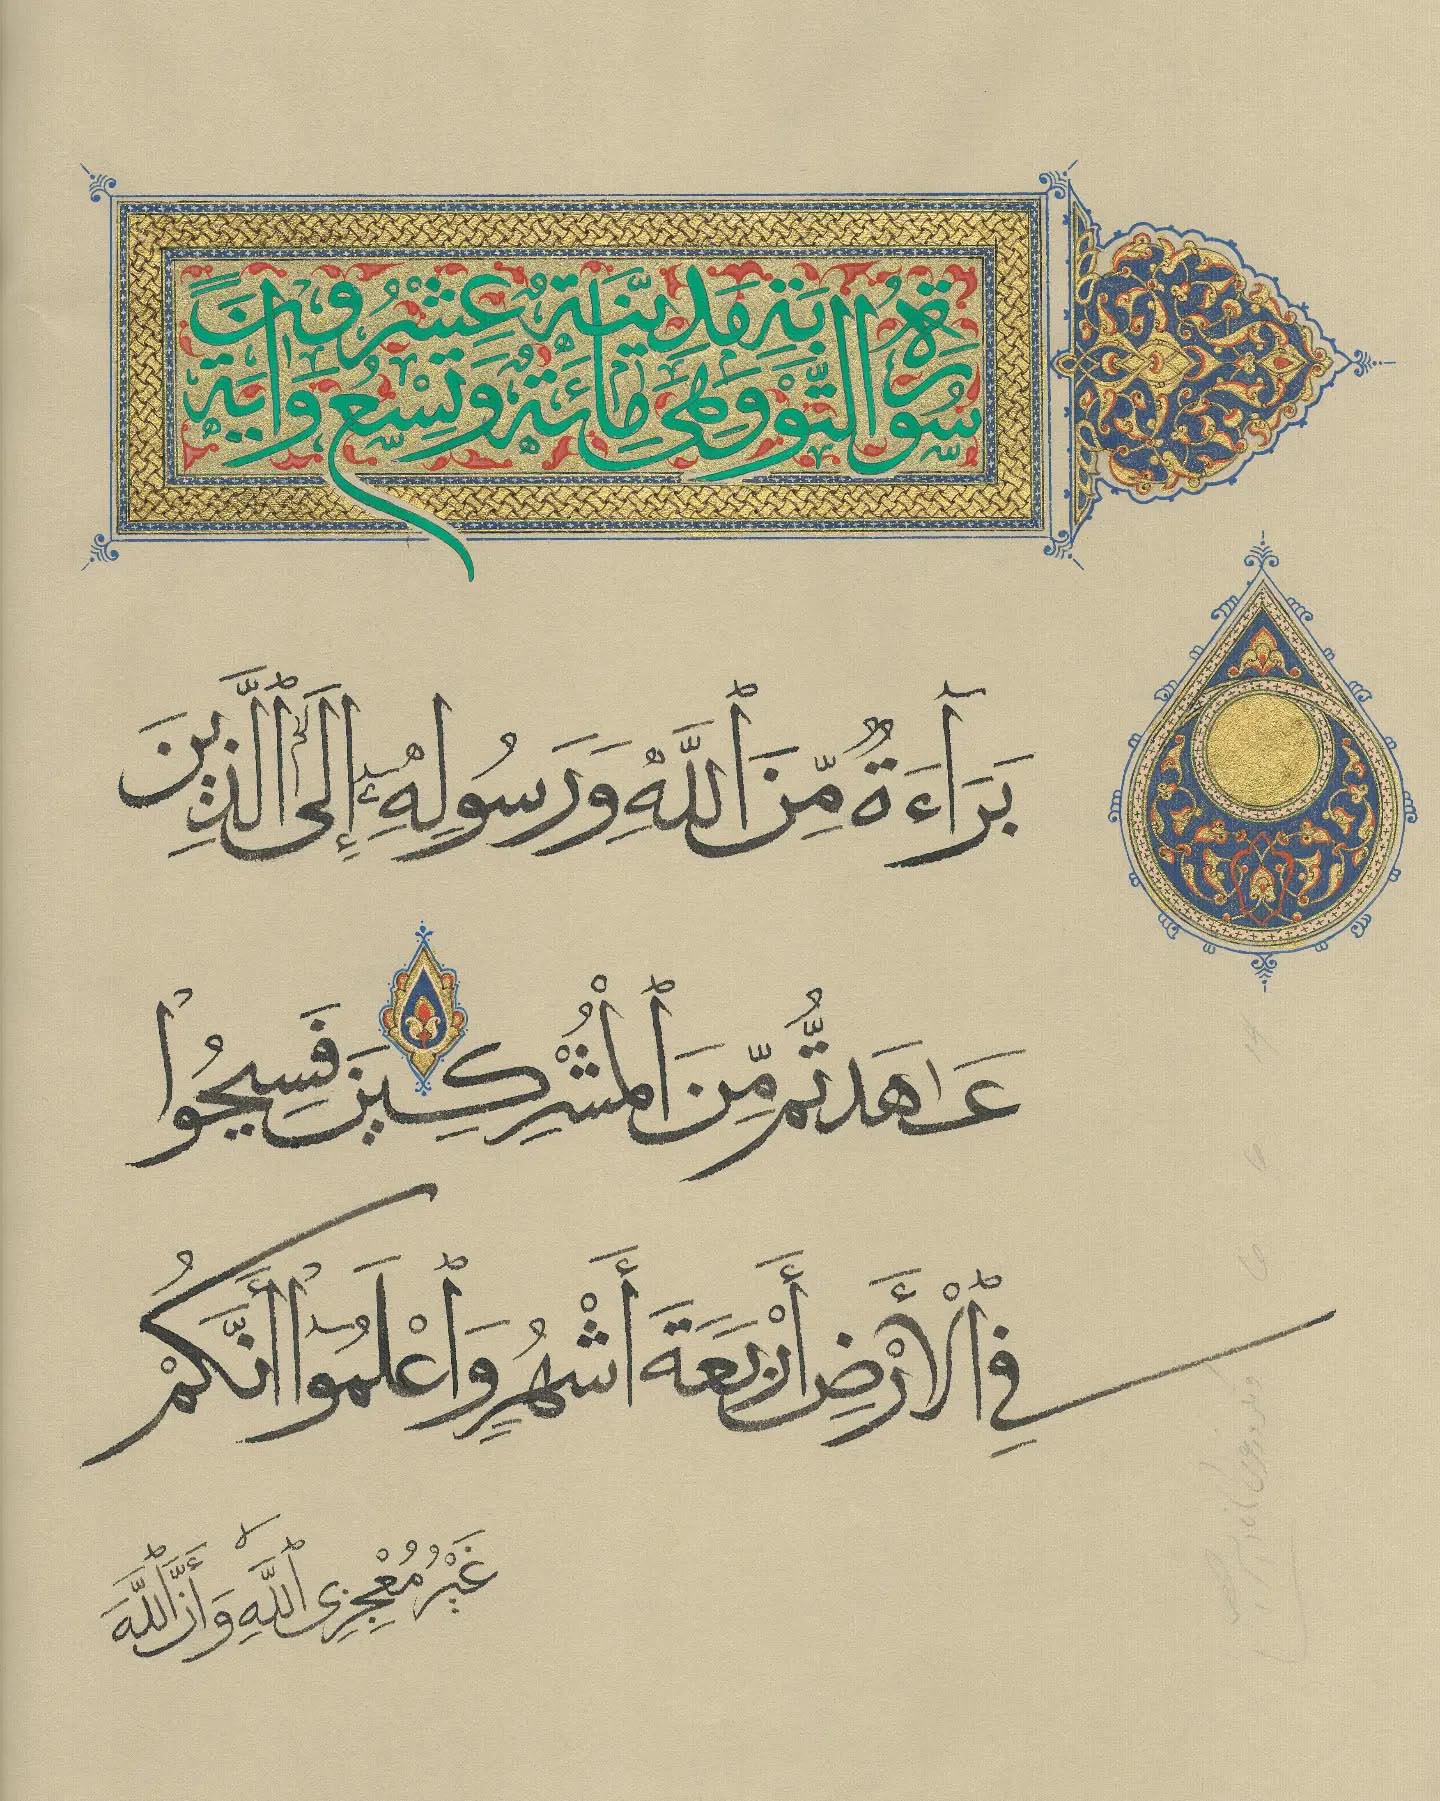 سُورَةُ التَّوْبَةِ مَدِينِيَّةٌ وَهِيَ مِائَةٌ وَتِسْعٌ وَعِشْرُونَ اٰيَةً
بَرَآءَةٌ مِّنَ ٱللَّهِ وَرَسُولِهِۦٓ إِلَى ٱلَّذِينَ
عَٰهَدتُّم مِّنَ ٱلْمُشْرِكِينَ فَسِيحُوا۟
فِى ٱلْأَرْضِ أَرْبَعَةَ أَشْهُرٍ وَٱعْلَمُوٓا۟ أَنَّكُمْ
غَيْرُ مُعْجِزِى ٱللَّهِ ۙ وَأَنَّ ٱللَّهَ